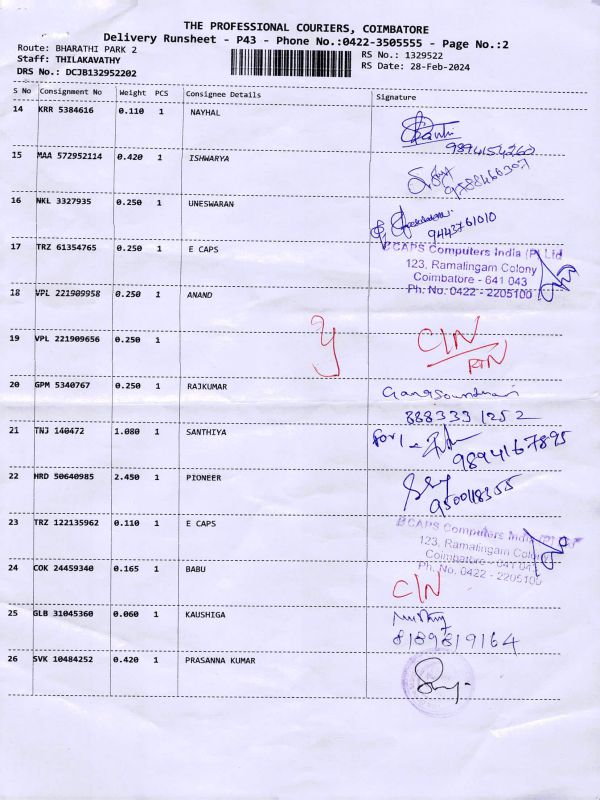 THE PROFESSIONAL COURIERS, COIMBATORE
Delivery Runsheet - P43 - Phone No.:0422-3505555 - Page No.:2
Route: BHARATHI PARK 2
RS No.: 1329522
Staff: THILAKAVATHY
RS Date: 28-Feb-2024
DRS No.: DCJB132952202
S No Consignment No Weight PCS Consignee Details Signature
14 KRR 5384616 0.110 1 NAYHAL
9894154260
15 MAA 572952114 0.420 1 ISHWARYA
9588466307
16 NKL 3327935 0.250 1 UNESWARAN
9443761010
17 TRZ 61354765 0.250 1 E CAPS
CAPS Computers India (P) Ltd
123, Ramalingam Colony
Coimbatore - 641 043
Ph. No: 0422 - 2205100
18 VPL 221909958 0.250 1 ANAND
19 VPL 221909656 0.250 1
y C/N
RTN
20 GPM 5340767 0.250 1 RAJKUMAR
888333 1252
21 TNJ 140472 1.080 1 SANTHIYA
for
9894167895
22 HRD 50640985 2.450 1 PIONEER
9500118355
23 TRZ 122135962 0.110 1 E CAPS
CAPS Computers India
123, Ramalingam Colony
Coimbatore - 641 043
Ph. No. 0422 - 2205100
24 COK 24459340 0.165 1 BABU
C/N
25 GLB 31045360 0.060 1 KAUSHIGA
8189819164
26 SVK 10484252 0.420 1 PRASANNA KUMAR